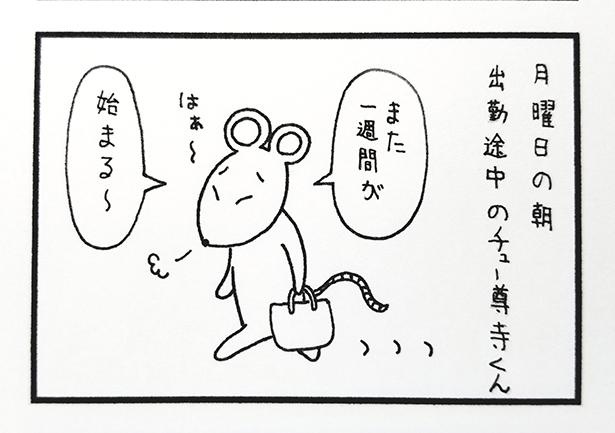 月曜日の朝
出勤途中のチュー尊寺くん
また
一週間が
はぁ〜
始まる〜